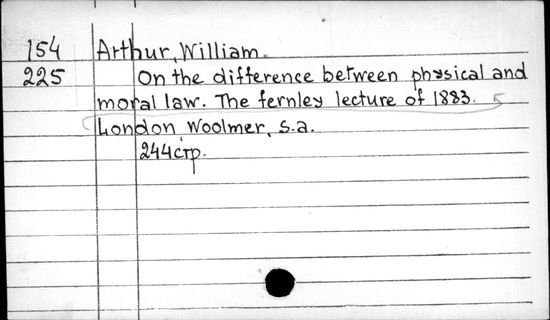 154 Arthur, William.
225 On the difference between physical and
moral law. The fernley lecture of 1883.
London, Woolmer, s.a.
244стр.